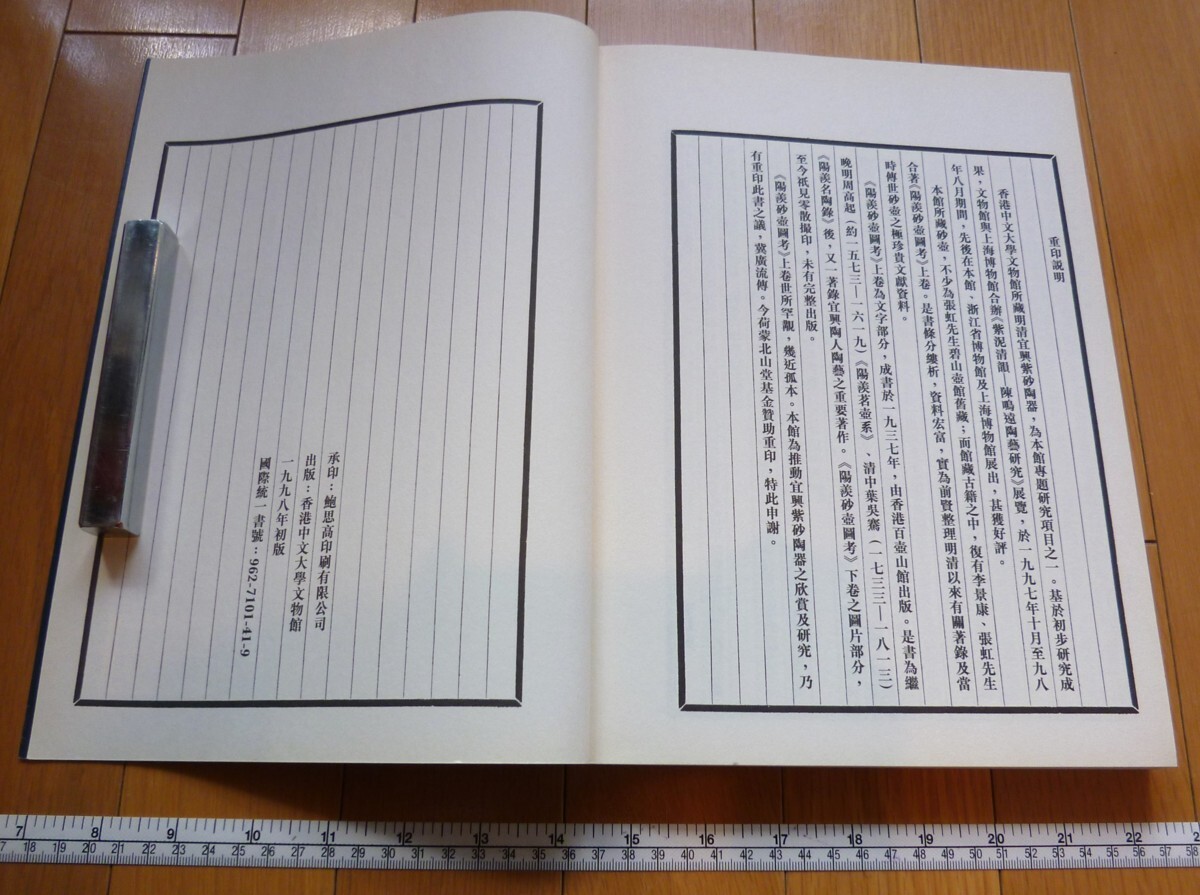 重印説明
香港中文大學文物館所藏明清宜興紫砂陶器，為本館專題研究項目之一。基於初步研究成
果，文物館與上海博物館合辦《紫泥清韻—陳鳴遠陶藝研究》展覽，於一九九七年十月至九八
年八月期間，先後在本館、浙江省博物館及上海博物館展出，甚獲好評。
本館所藏砂壺，不少為張虹先生碧山壺館舊藏；而館藏古籍之中，復有李景康、張虹先生
合著《陽羨砂壺圖考》上卷。是書條分縷析，資料宏富，實為前賢整理明清以來有關著錄及當
時傳世砂壺之極珍貴文獻資料。
《陽羨砂壺圖考》上卷為文字部分，成書於一九三七年，由香港百壺山館出版。是書為繼
晚明周高起（約一五七三—一六一九）《陽羨茗壺系》、清中葉吳騫（一七三三—一八一三）
《陽羨名陶錄》後，又一著錄宜興陶人陶藝之重要著作。《陽羨砂壺圖考》下卷之圖片部分，
至今祇見零散撮印，未有完整出版。
《陽羨砂壺圖考》上卷世所罕覯，幾近孤本。本館為推動宜興紫砂陶器之欣賞及研究，乃
有重印此書之議，冀廣流傳。今荷蒙北山堂基金贊助重印，特此申謝。
承印：鮑思高印刷有限公司
出版：香港中文大學文物館
一九九八年初版
國際統一書號：962-7101-41-9
7 8 9 10 11 12 13 14 15 16 17 18 19 20 21 22
18 19 20 21 22 23 24 25 26 27 28 29 30 31 32 33 34 35 36 37 38 39 40 41 42 43 44 45 46 47 48 49 50 51 52 53 54 55 56 57 58